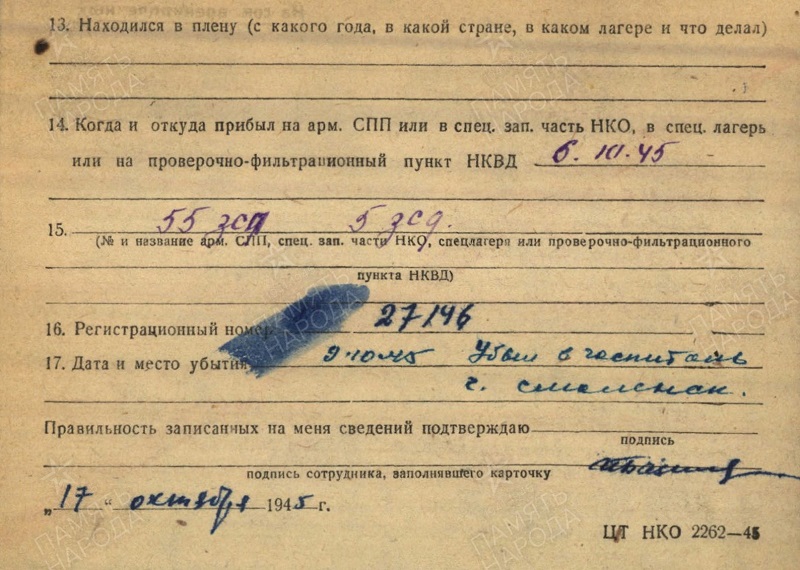 13. Находился в плену (с какого года, в какой стране, в каком лагере и что делал)
14. Когда и откуда прибыл на арм. СПП или в спец. зап. часть НКО, в спец. лагерь
или на проверочно-фильтрационный пункт НКВД 6.10.45
15. 55 зсд 5 зсд.
(№ и название арм. СПП, спец. зап. части НКО, спецлагеря или проверочно-фильтрационного
пункта НКВД)
16. Регистрационный номер 27146
17. Дата и место убытия 9.10.45 Убыл в госпиталь
г. Смоленск.
Правильность записанных на меня сведений подтверждаю
подпись
подпись сотрудника, заполнявшего карточку
„17" октября 1945 г.
ЦТ НКО 2262—45
ПАМЯТЬ НАРОДА